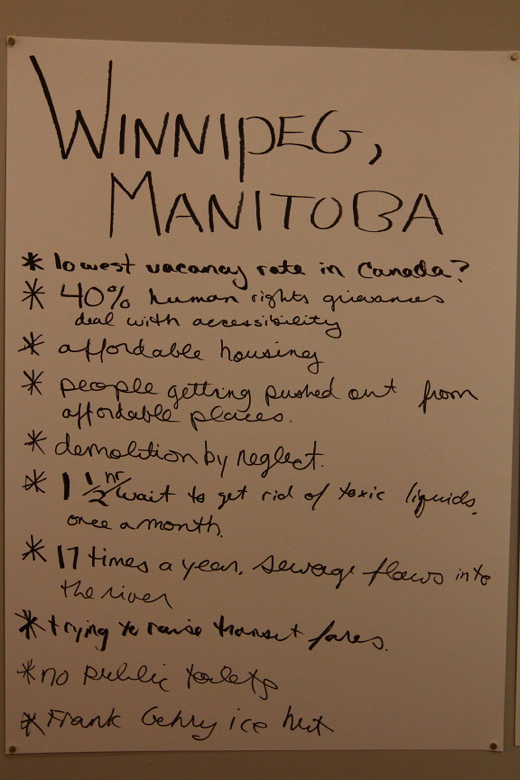 WINNIPEG,
MANITOBA
* lowest vacancy rate in Canada?
* 40% human rights grievances
deal with accessibility
* affordable housing
* people getting pushed out from
affordable places.
* demolition by neglect.
* 1 1/2 hr wait to get rid of toxic liquids.
once a month.
* 17 times a year, sewage flows into
the river
* trying to raise transit fares.
* no public toilets
* Frank Gehry ice hut